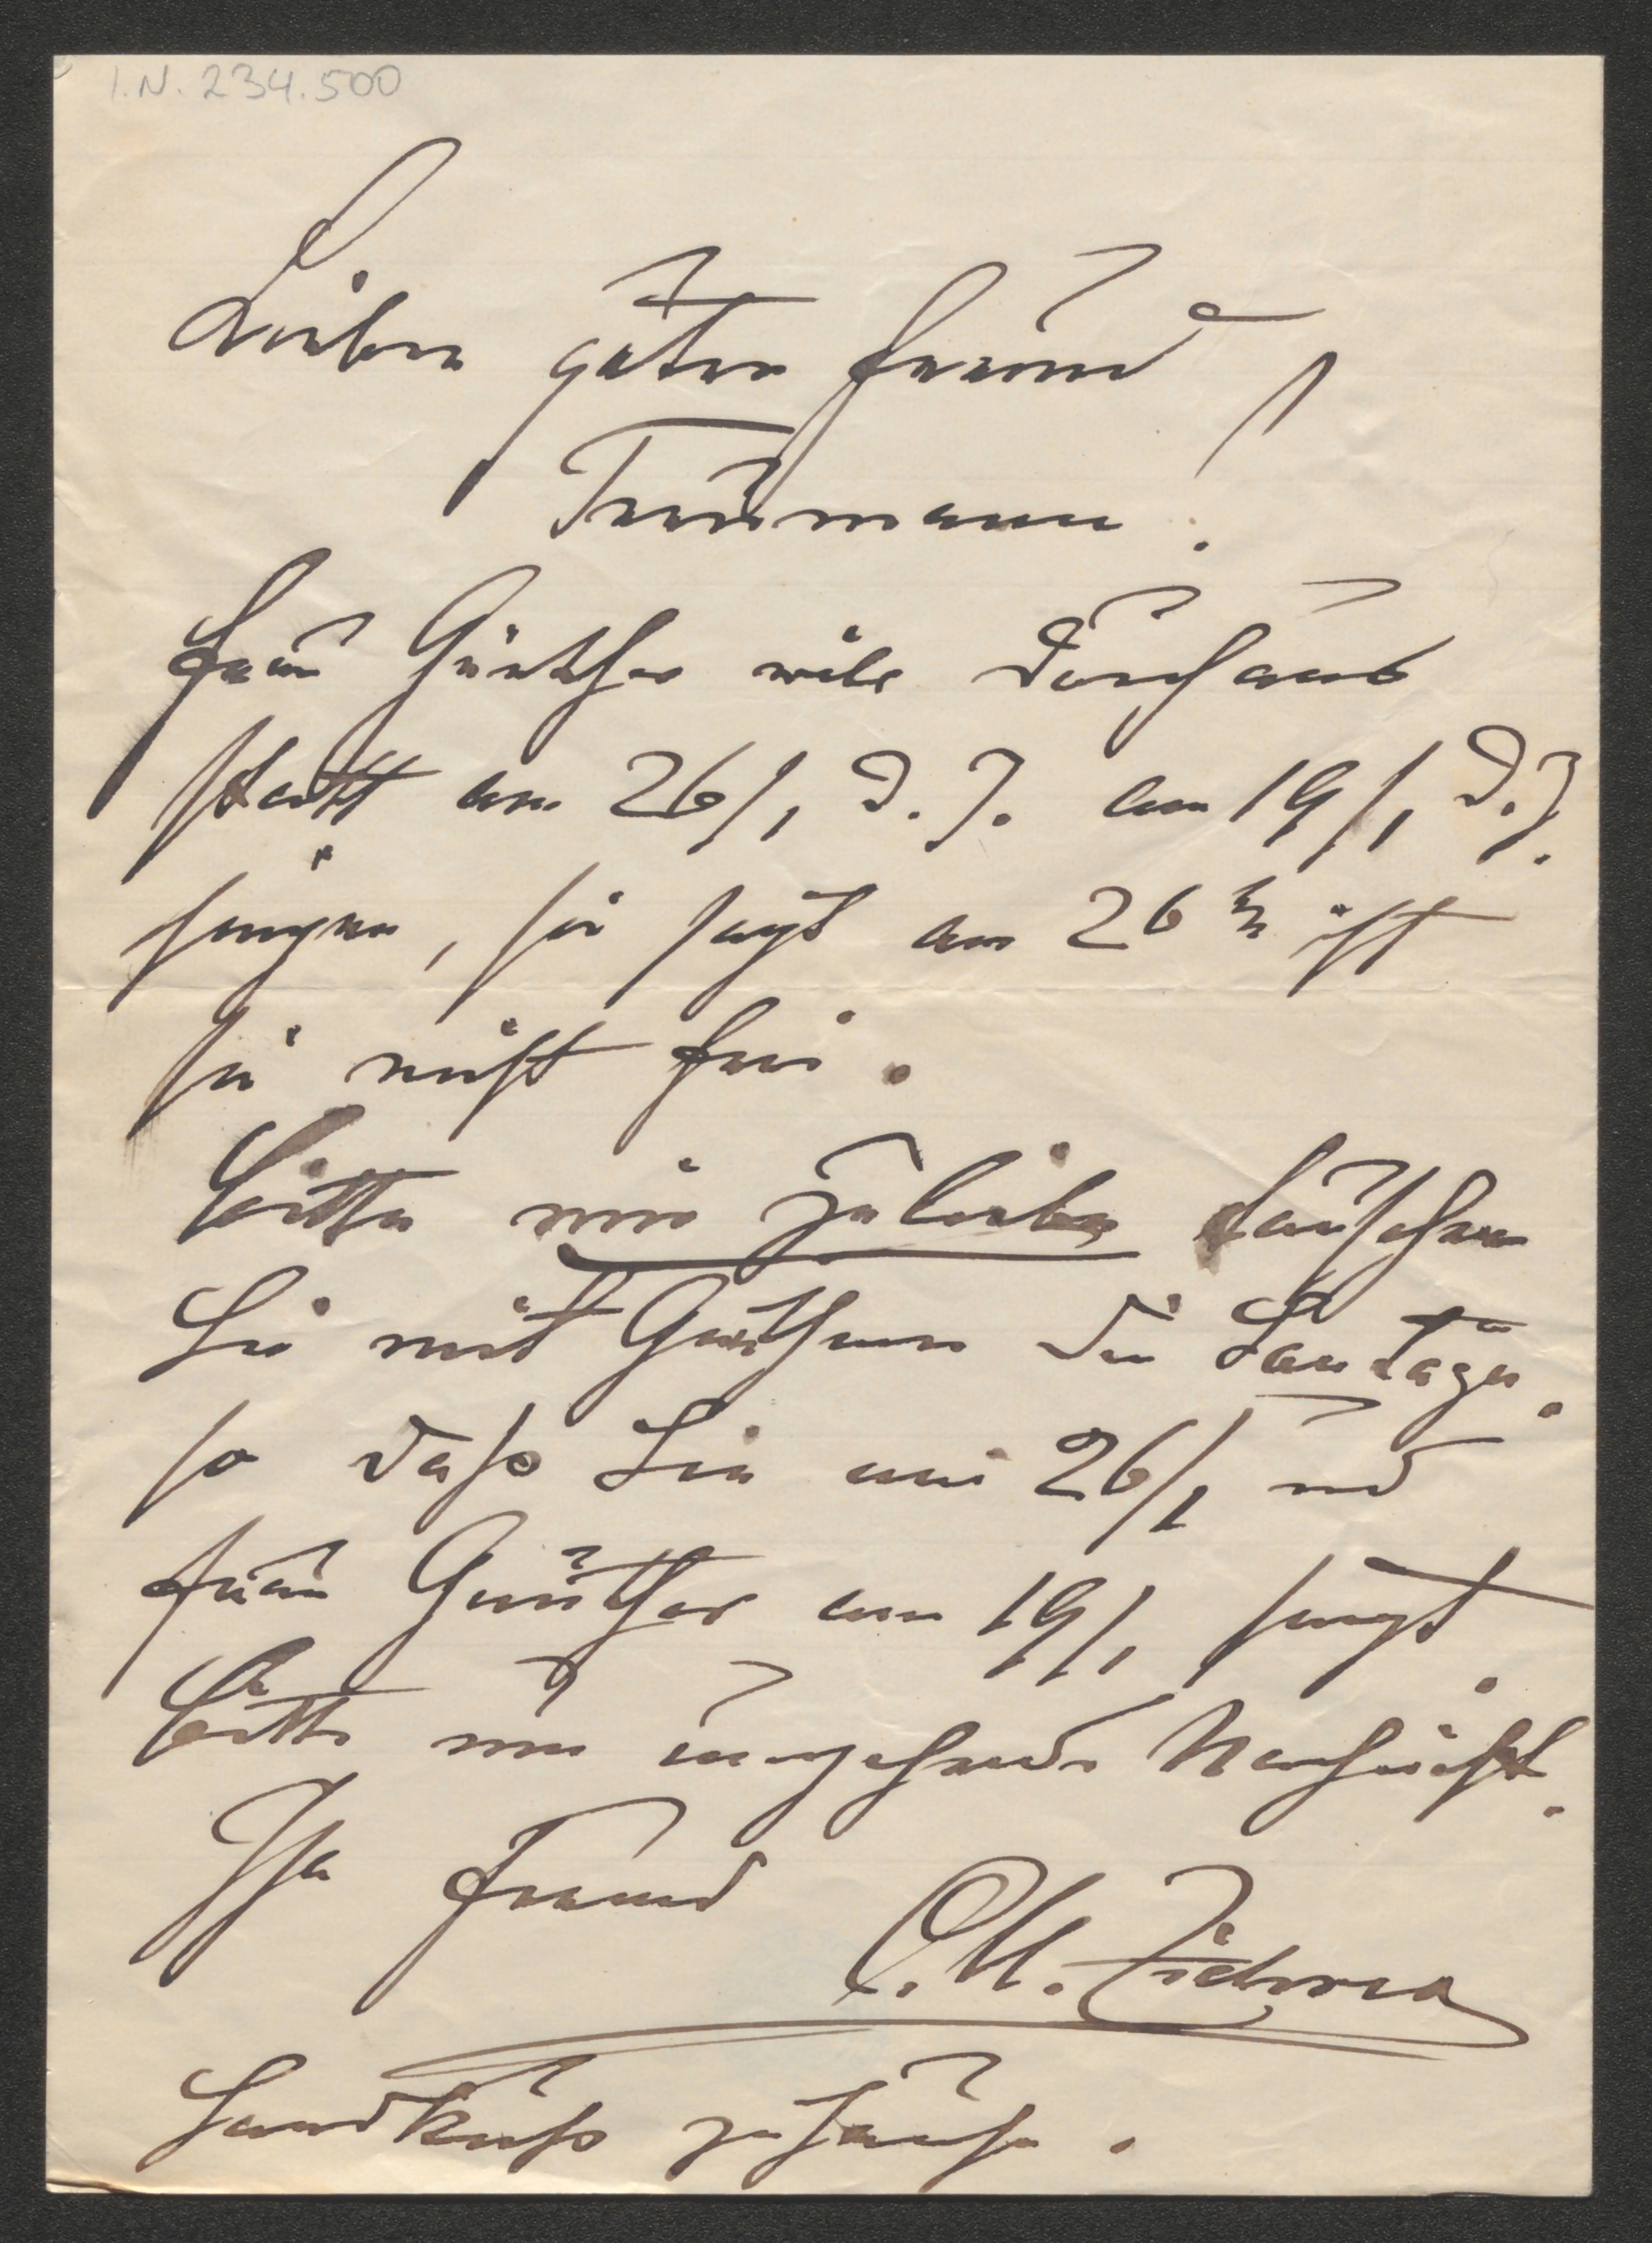 I.N. 234.500
Lieber guter Freund
Treumann!
Frau Günther will durchaus
statt am 26/1 d. J. am 19/1 d. J.
singen, sie sagt am 26ten ist
sie nicht frei.
Bitte mir zuliebe tauschen
Sie mit Günther die
so daß Sie am 26/1 und
Frau Günther am 19/1 singt.
Bitte um umgehende Nachricht.
Ihr Freund
C. M. Ziehrer
Handkuß zuhause.